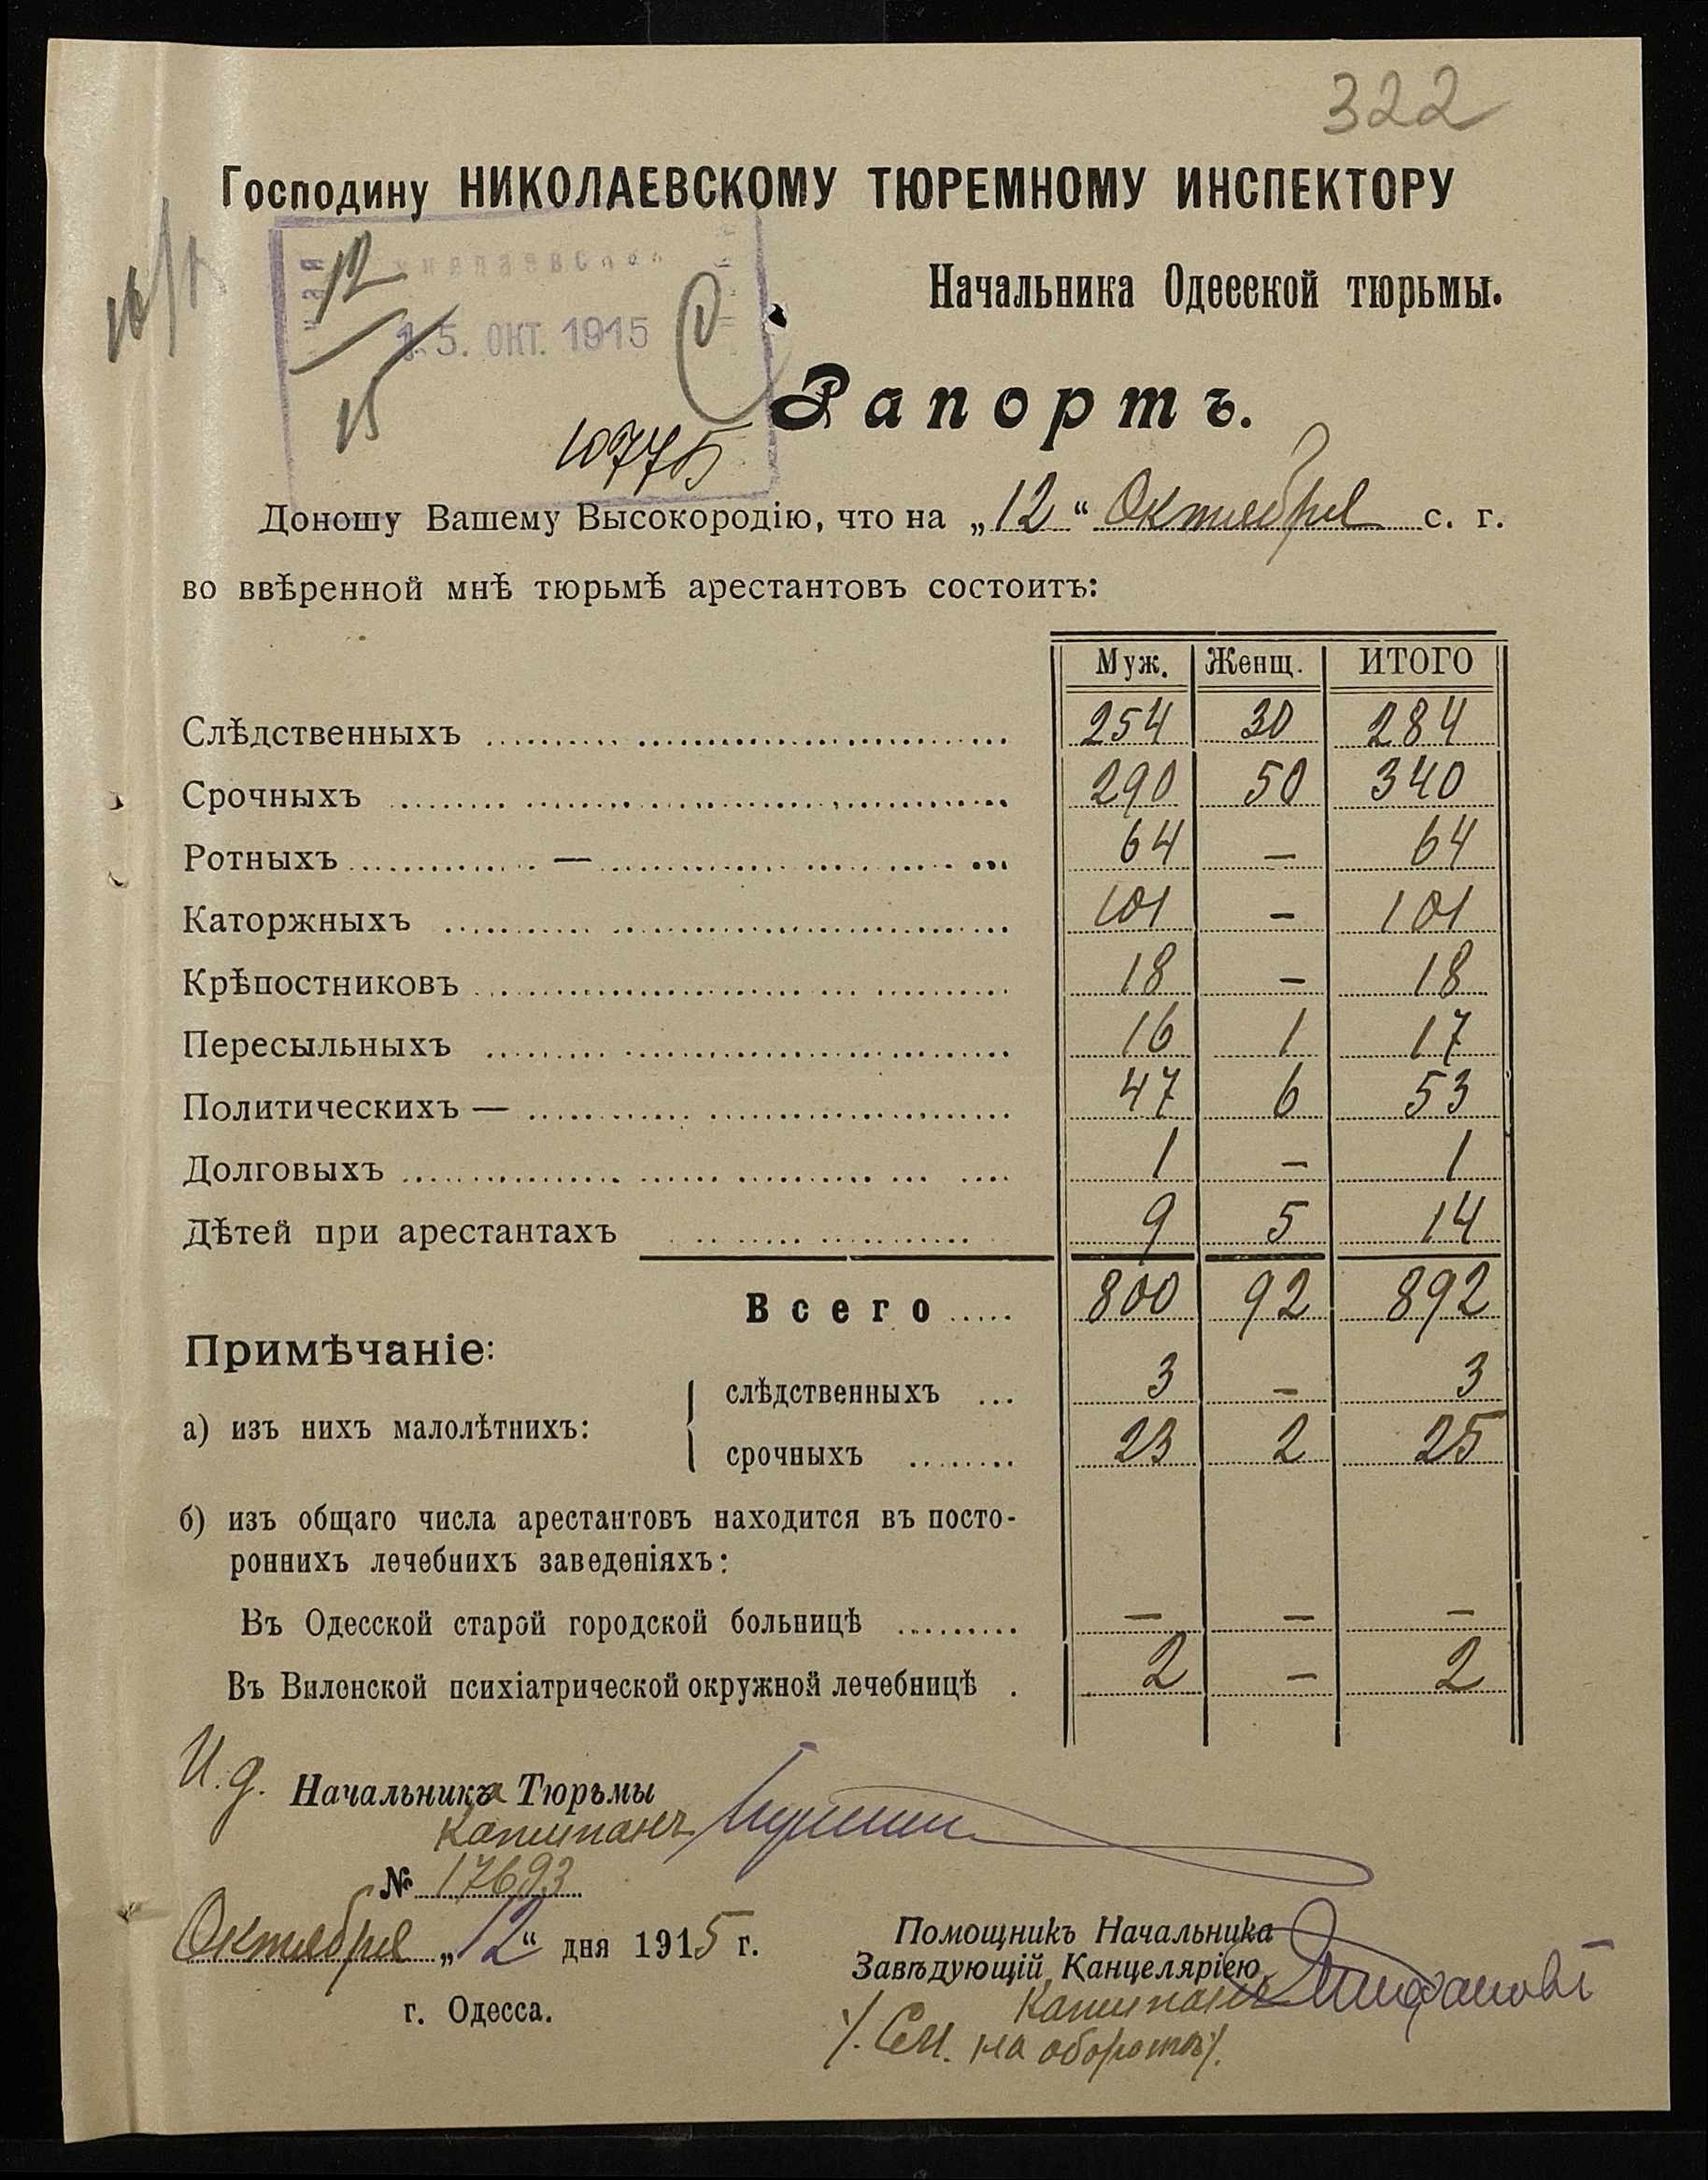 322
Господину НИКОЛАЕВСКОМУ ТЮРЕМНОМУ ИНСПЕКТОРУ
Начальника Одесской тюрьмы.
12
15
15. ОКТ. 1915
Рапортъ.
10775
Доношу Вашему Высокородію, что на „12“ Октября с. г.
во ввѣренной мнѣ тюрьмѣ арестантовъ состоитъ:
Муж. Женщ. ИТОГО
Слѣдственныхъ 254 30 284
Срочныхъ 290 50 340
Ротныхъ — 64 — 64
Каторжныхъ 101 — 101
Крѣпостниковъ 18 — 18
Пересыльныхъ 16 1 17
Политическихъ — 47 6 53
Долговыхъ 1 — 1
Дѣтей при арестантахъ 9 5 14
Всего 800 92 892
Примѣчаніе:
а) изъ нихъ малолѣтнихъ:
слѣдственныхъ 3 — 3
срочныхъ 23 2 25
б) изъ общаго числа арестантовъ находится въ посто-
роннихъ лечебнихъ заведеніяхъ:
Въ Одесской старой городской больницѣ — — —
Въ Виленской психіатрической окружной лечебницѣ 2 — 2
И. д. Начальника Тюрьмы
Капитанъ
№ 17693
Октября „12“ дня 1915 г.
г. Одесса.
Помощникъ Начальника
Завѣдующій Канцеляріею
Капитанъ
/. См. на оборотѣ /.